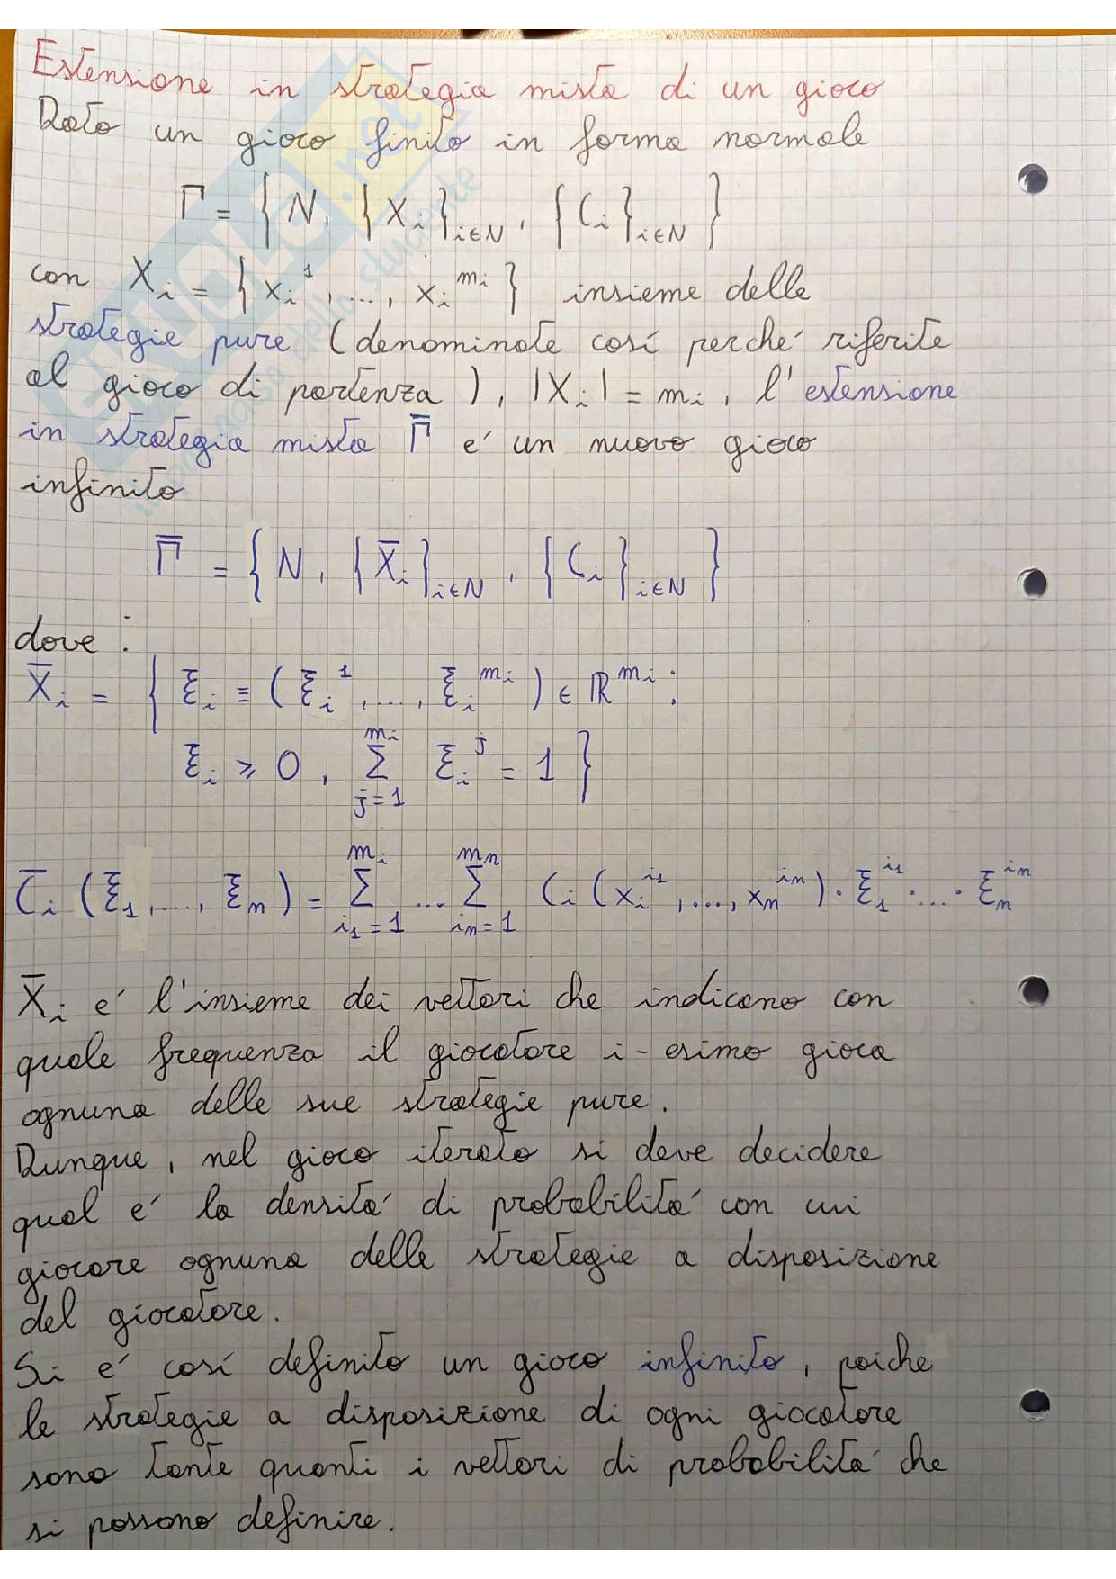 Estensione in strategia mista di un gioco
Dato un gioco finito in forma normale
Γ = { N, {X_i}_{i∈N}, {C_i}_{i∈N} }
con X_i = { x_i^1, ..., x_i^{m_i} } insieme delle
strategie pure (denominate cosí perché riferite
al gioco di partenza), |X_i| = m_i, l'estensione
in strategia mista Γ̅ e' un nuovo gioco
infinito
Γ̅ = { N, {X̅_i}_{i∈N}, {C_i}_{i∈N} }
dove :
X̅_i = { ξ_i ≡ (ξ_i^1, ..., ξ_i^{m_i}) ∈ ℝ^{m_i} :
ξ_i ⩾ 0, ∑_{j=1}^{m_i} ξ_i^j = 1 }
C̅_i (ξ_1, ..., ξ_n) = ∑_{i_1=1}^{m_i} ... ∑_{i_n=1}^{m_n} C_i (x_i^{i_1}, ..., x_n^{i_n}) · ξ_1^{i_1} · ... · ξ_n^{i_n}
X̅_i e' l'insieme dei vettori che indicano con
quale frequenza il giocatore i-esimo gioca
ognuna delle sue strategie pure.
Dunque, nel gioco iterato si deve decidere
qual e' la densita' di probabilita' con cui
giocare ognuna delle strategie a disposizione
del giocatore.
Si e' cosí definito un gioco infinito, poiche
le strategie a disposizione di ogni giocatore
sono tante quanti i vettori di probabilita' che
si possono definire.